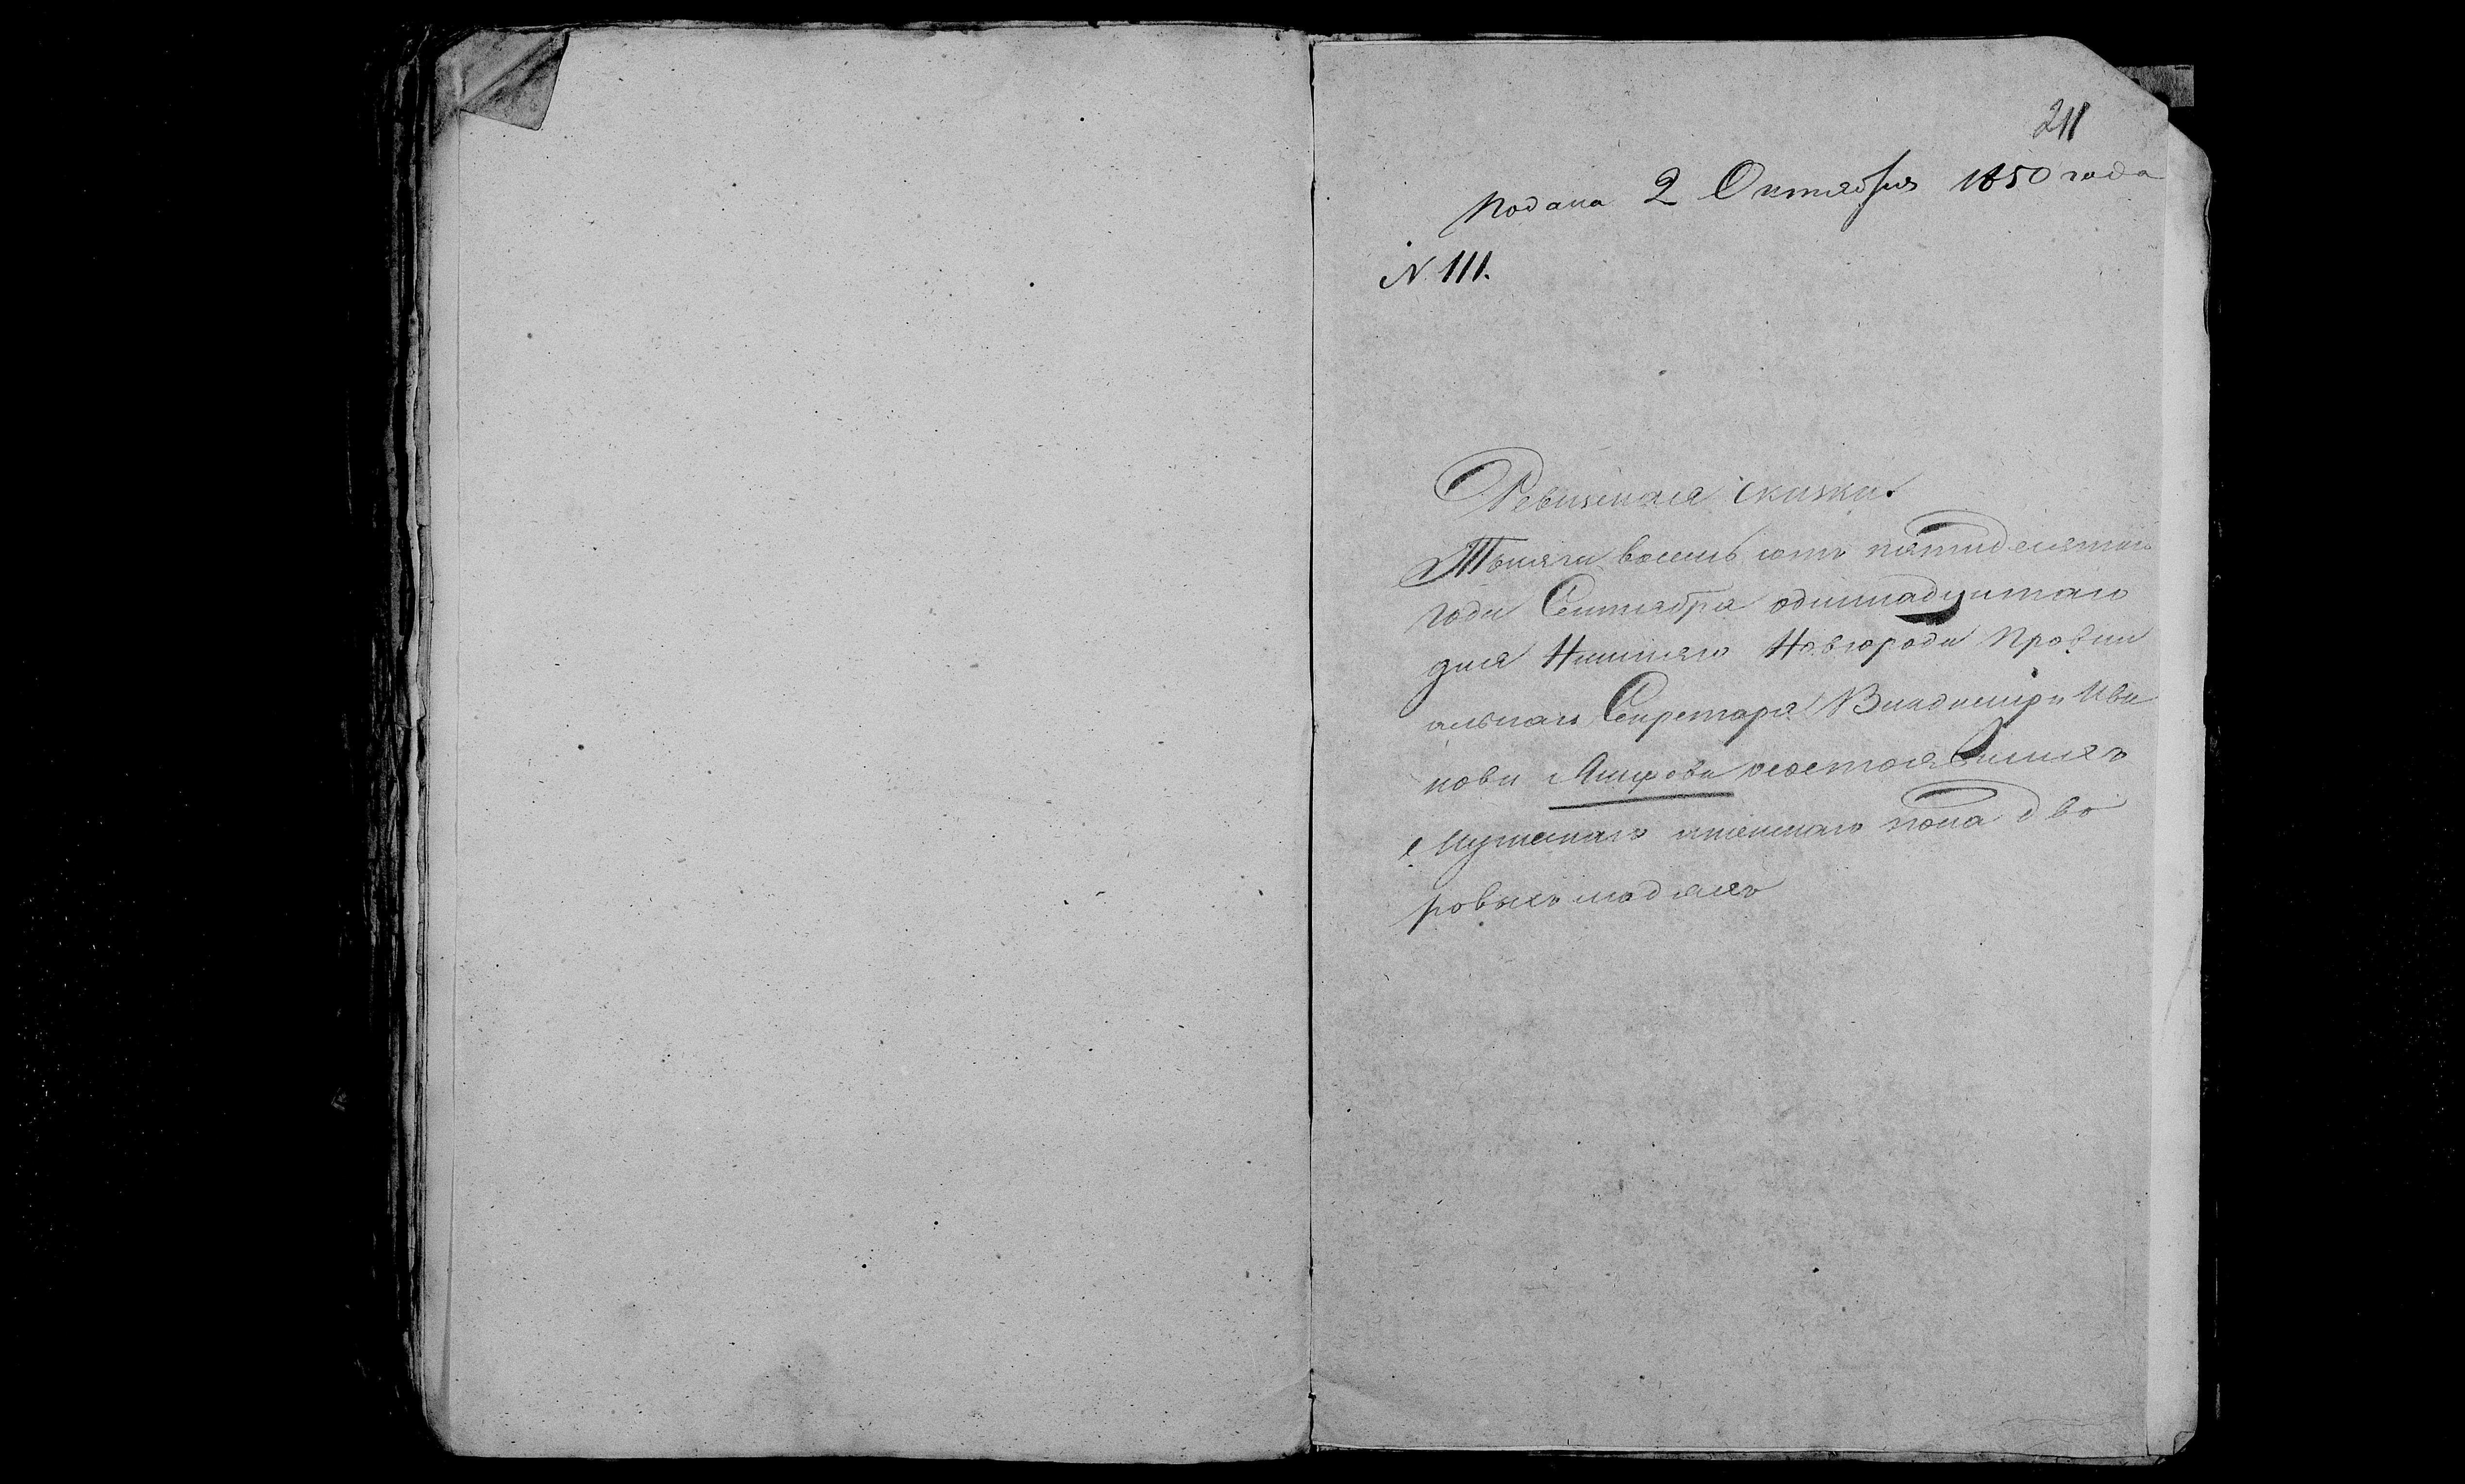 211
подана 2 Октября 1850 года
N 111.
Ревизская сказка.
Тысяча восемь сотъ пятидесятаго
года Сентября одиннадцатаго
дня Нижняго Новгорода Провин
альнаго Секретаря Владимира Ива
нова сына о состоящихъ
мужескаго и женскаго пола дво
ровыхъ людяхъ